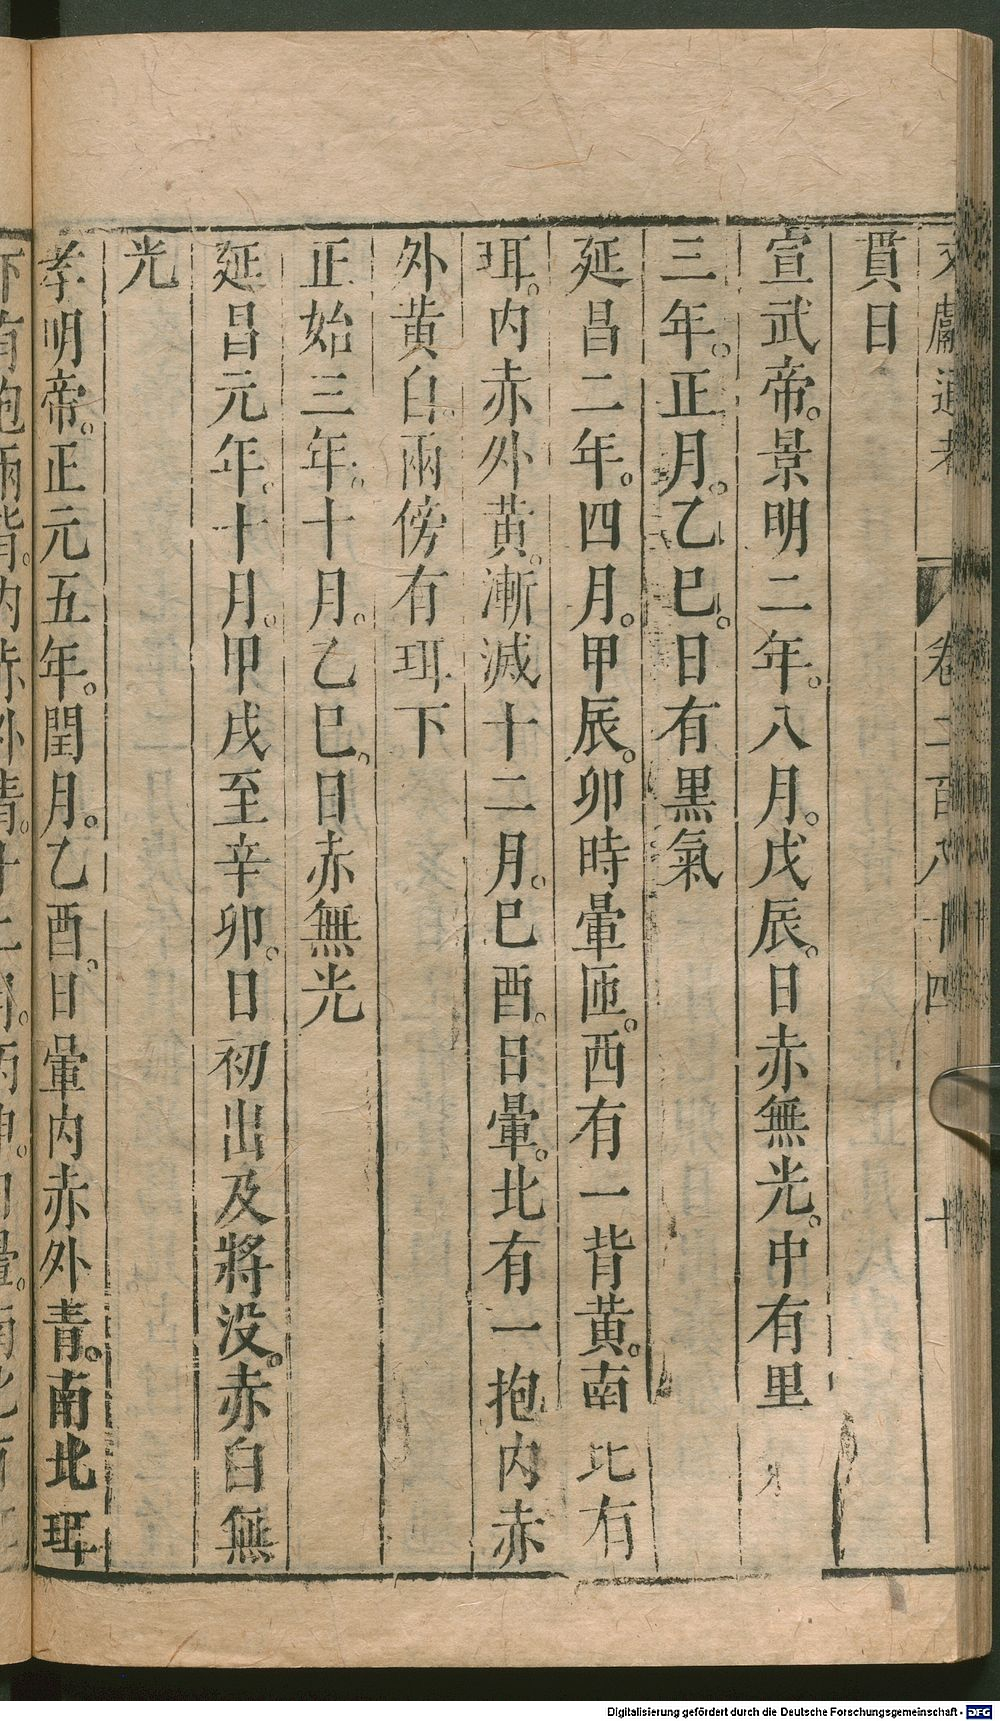 文獻通考　卷二百八十四　十
貫日
宣武帝。景明二年。八月。戊辰。日赤無光。中有里
三年。正月。乙巳。日有黒氣
延昌二年。四月。甲辰。卯時暈匝。西有一背黄。南北有
珥。内赤外黄。漸滅十二月。巳酉。日暈。北有一抱内赤
外黄白。兩傍有珥下
正始三年。十月。乙巳。日赤無光
延昌元年。十月。甲戌至辛卯。日初出及將没。赤白無
光
孝明帝。正元五年。閏月。乙酉。日暈内赤外青。南北珥
Digitalisierung gefördert durch die Deutsche Forschungsgemeinschaft - DFG